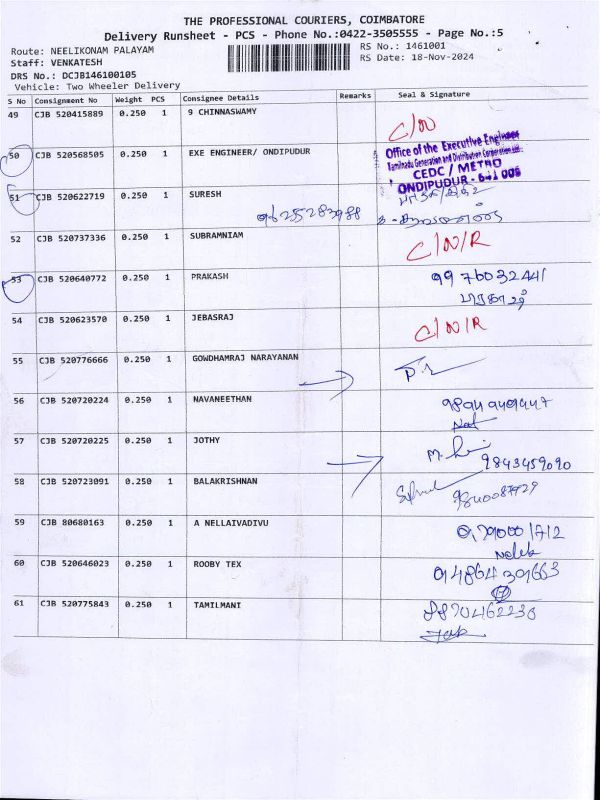 THE PROFESSIONAL COURIERS, COIMBATORE
Delivery Runsheet - PCS - Phone No.:0422-3505555 - Page No.:5
Route: NEELIKONAM PALAYAM
RS No.: 1461001
Staff: VENKATESH
RS Date: 18-Nov-2024
DRS No.: DCJB146100105
Vehicle: Two Wheeler Delivery
S No Consignment No Weight PCS Consignee Details Remarks Seal & Signature
49 CJB 520415889 0.250 1 9 CHINNASWAMY C/N
50 CJB 520568505 0.250 1 EXE ENGINEER/ ONDIPUDUR
Office of the Executive Engineer
Tamilnadu Generation and Distribution Corporation Ltd.
CEDC / METRO
ONDIPUDUR - 641 005
51 CJB 520622719 0.250 1 SURESH
52 CJB 520737336 0.250 1 SUBRAMNIAM C/N/R
53 CJB 520640772 0.250 1 PRAKASH 9976032441
54 CJB 520623570 0.250 1 JEBASRAJ C/N/R
55 CJB 520776666 0.250 1 GOWDHAMRAJ NARAYANAN
56 CJB 520720224 0.250 1 NAVANEETHAN
57 CJB 520720225 0.250 1 JOTHY 9843459090
58 CJB 520723091 0.250 1 BALAKRISHNAN
59 CJB 80680163 0.250 1 A NELLAIVADIVU
60 CJB 520646023 0.250 1 ROOBY TEX
61 CJB 520775843 0.250 1 TAMILMANI